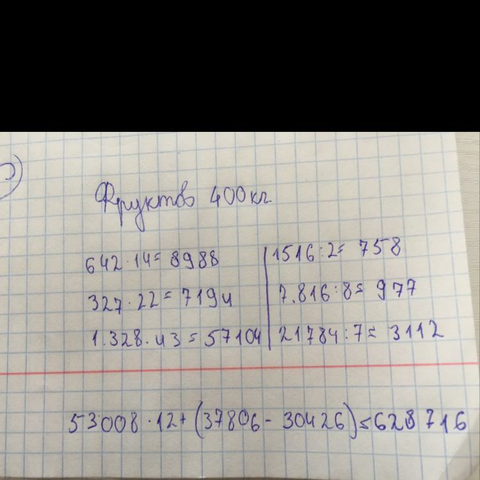 Фруктов 400кг
642·14=8988
327·22=7194
1.328·43=57104
1516:2=758
7.816:8=977
21784:7=3112
53008·12+(37806-30426)=628716